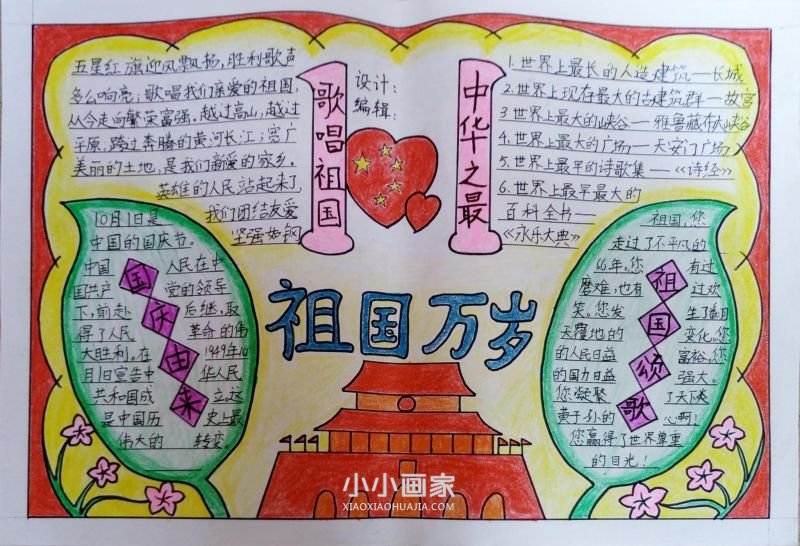 五星红旗迎风飘扬，胜利歌声
多么响亮；歌唱我们亲爱的祖国，
从今走向繁荣富强。越过高山，越过
平原；跨过奔腾的黄河长江；宽广
美丽的土地，是我们亲爱的家乡。
英雄的人民站起来了，
我们团结友爱
坚强如钢
歌唱祖国
设计：
编辑：
中华之最
1.世界上最长的人造建筑—长城，
2.世界上现存最大的古建筑群—故宫
3.世界上最大的峡谷—雅鲁藏布大峡谷
4.世界上最大的广场—天安门广场
5.世界上最早的诗歌集—《诗经》
6.世界上最早最大的
百科全书—
《永乐大典》
10月1日是
中国的国庆节。
中国 人民在中
国共产 党的领导
下，前赴 后继，取
得了人民 革命的伟
大胜利。在 1949年10
月1日宣告中 华人民
共和国成 立，这
是中国历 史上最
伟大的 转变。
国庆由来
祖国万岁
祖国，您
走过了不平凡的
66年。您 有过
磨难，也有 过欢
笑。您发 生了翻
天覆地的 变化。您
的人民日益 富裕，您
的国力日益 强大。
您凝聚 了天下炎
黄子孙的 心啊！
您赢得了世界尊重
的目光！
祖国颂歌
小小画家
XIAOXIAOHUAJIA.COM